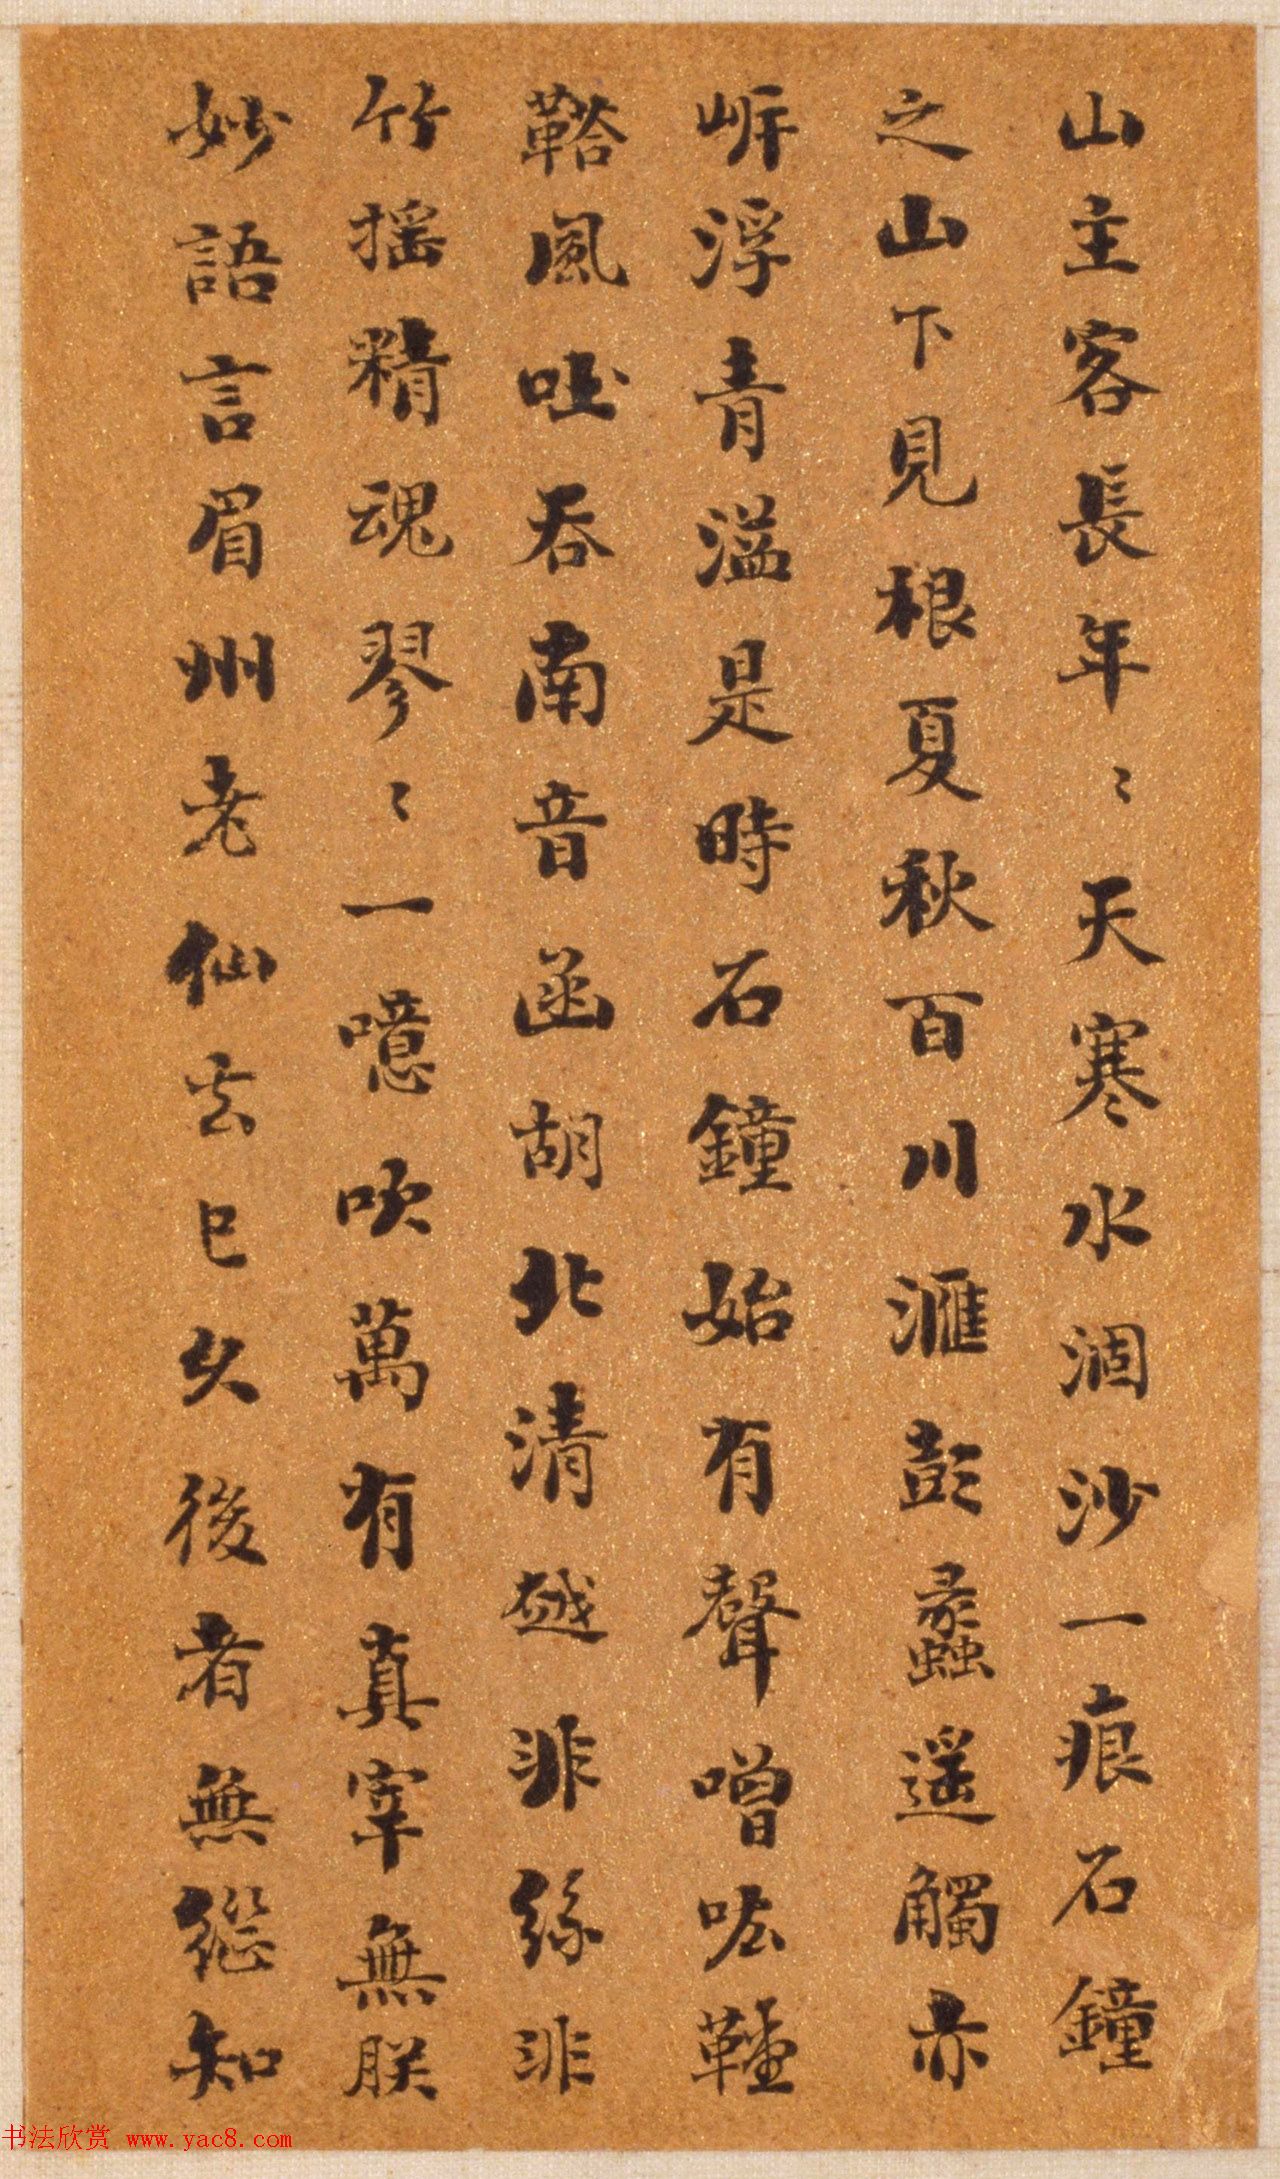 山主客長年〻天寒水涸沙一痕石鐘
之山下見根夏秋百川滙彭蠡遥觸赤
岸浮青溢是時石鐘始有聲噌吰鞺
鞳風吐吞南音函胡北清越非絲非
竹摇精魂翏〻一噫吹萬有真宰無朕
妙語言眉州老仙去已久後者無繼知
书法欣赏 www.yac8.com